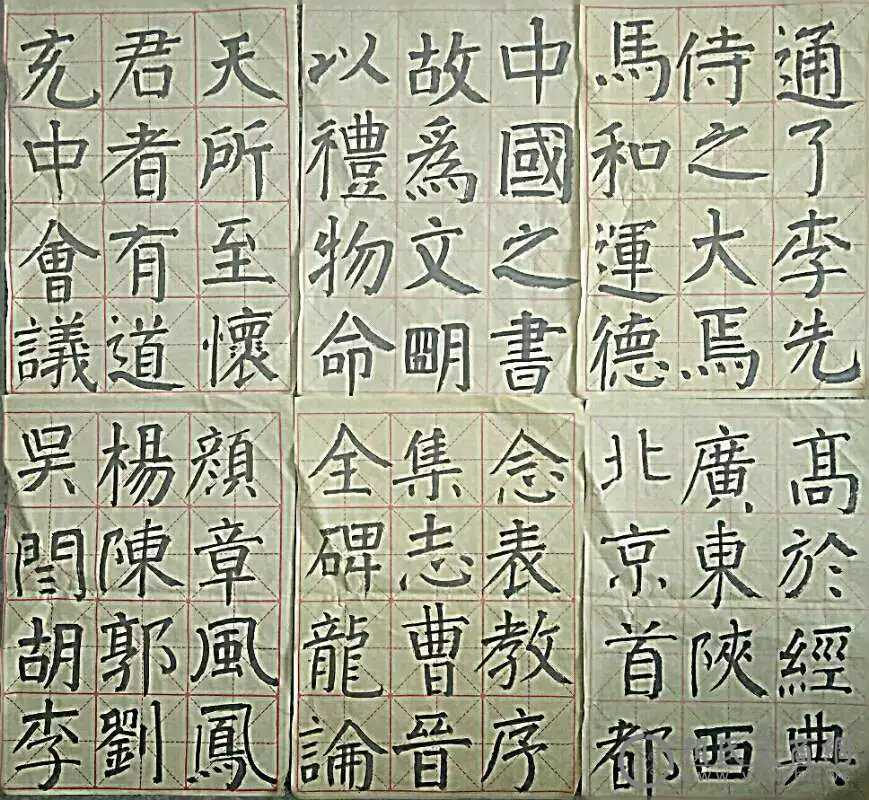 通了李先
侍之大焉
馬和運德
中國之書
故爲文朙
以禮物命
天所至懷
君者有道
充中會議
髙於經典
廣東陝西
北京首都
念表教序
集志曹晉
全碑龍論
顏章風鳳
楊陳郭劉
吳閆胡李